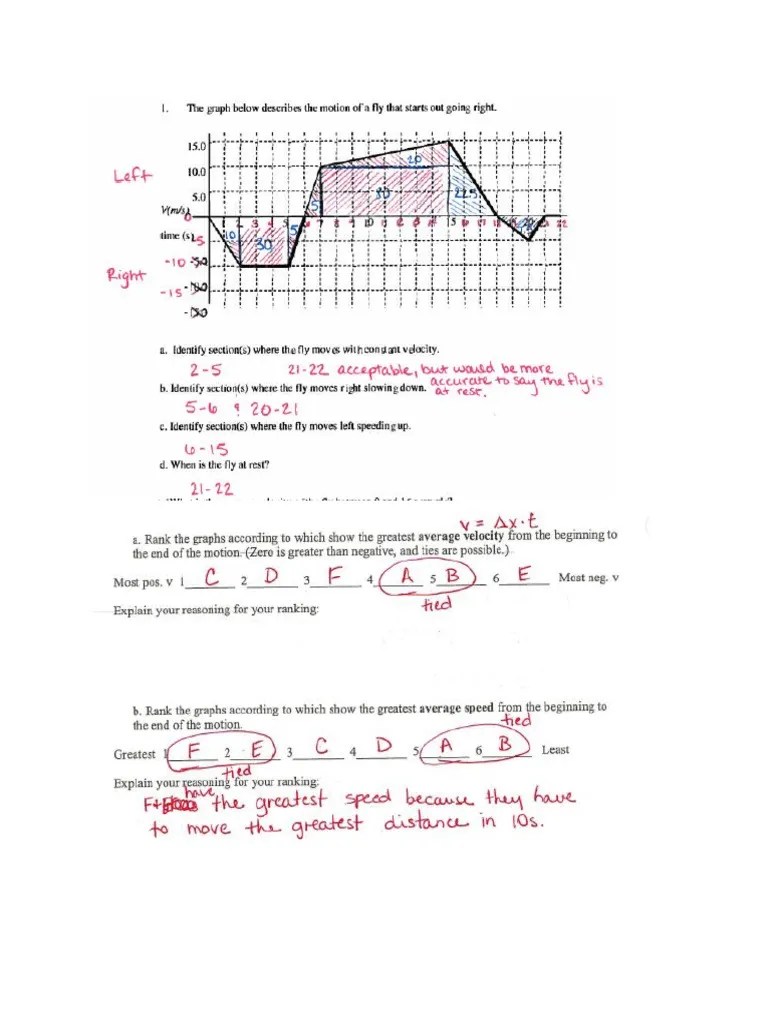 1. The graph below describes the motion of a fly that starts out going right.
15.0
Left
10.0
5.0
V(m/s)
0
time (s)
-5
-10
Right
-15
10
30
5
5
80
20
22.5
20
3 4 5 6 7 8 9 10
21 22
a. Identify section(s) where the fly moves with constant velocity.
2-5 21-22 acceptable, but would be more
accurate to say the fly is
b. Identify section(s) where the fly moves right slowing down. at rest.
5-6 & 20-21
c. Identify section(s) where the fly moves left speeding up.
6-15
d. When is the fly at rest?
21-22
v = Δx·t
a. Rank the graphs according to which show the greatest average velocity from the beginning to
the end of the motion. (Zero is greater than negative, and ties are possible.)
Most pos. v 1 C 2 D 3 F 4 A 5 B 6 E Most neg. v
tied
Explain your reasoning for your ranking:
b. Rank the graphs according to which show the greatest average speed from the beginning to
the end of the motion.
tied
Greatest 1 F 2 E 3 C 4 D 5 A 6 B Least
tied
Explain your reasoning for your ranking:
have
F+E the greatest speed because they have
to move the greatest distance in 10s.